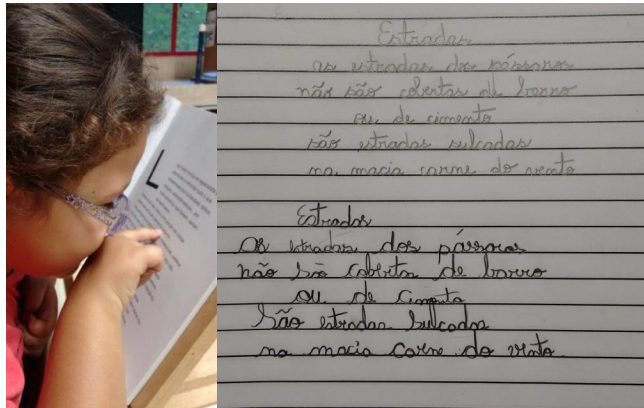 L
Estradas
as estradas dos pássaros
não são cobertas de barro
ou de cimento
são estradas sulcadas
na macia carne do vento
Estradas
As estradas dos pássaros
não são cobertas de barro
ou de cimento
São estradas sulcadas
na macia carne do vento